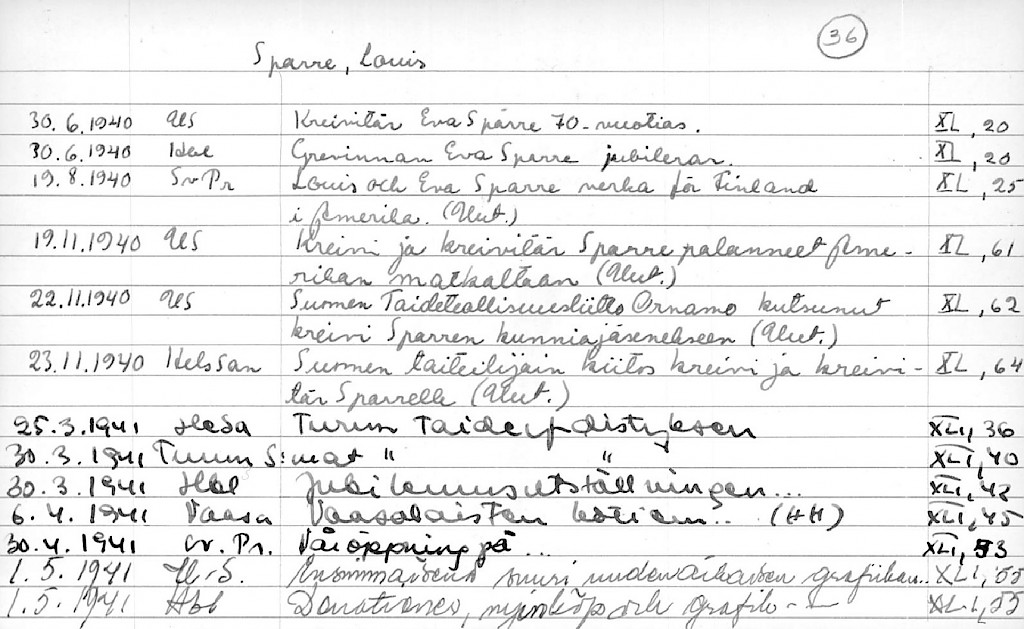 36
Sparre, Louis
30.6.1940 US Kreivitär Eva Sparre 70-vuotias. XL, 20
30.6.1940 Hbl Grevinnan Eva Sparre jubilerar. XL, 20
19.8.1940 Sv Pr Louis och Eva Sparre verka för Finland XL, 25
i Amerika. (Uut.)
19.11.1940 US Kreivi ja kreivitär Sparre palanneet Ame- XL, 61
rikan matkaltaan (Uut.)
22.11.1940 US Suomen Taideteollisuusliitto Ornamo kutsunut XL, 62
kreivi Sparren kunniajäsenekseen (Uut.)
23.11.1940 HelsSan Suomen taiteilijain kiitos kreivi ja kreivi- XL, 64
tär Sparrelle (Uut.)
25.3.1941 HeSa Turun Taideyhdistyksen XLI, 36
30.3.1941 Turun S:mat " " XLI, 40
30.3.1941 Hbl Jubileumsutställningen... XLI, 42
6.4.1941 Vaasa Vaasalaisten kotien... (HH) XLI, 45
30.4.1941 Sv. Pr. Våröppning på... XLI, 53
1.5.1941 H.S. Ensimmäisenä suuri uudenaikaisen grafiikan.. XLI, 55
1.5.1941 Hbl Donationer, nyinköp och grafik -- XLI, 55